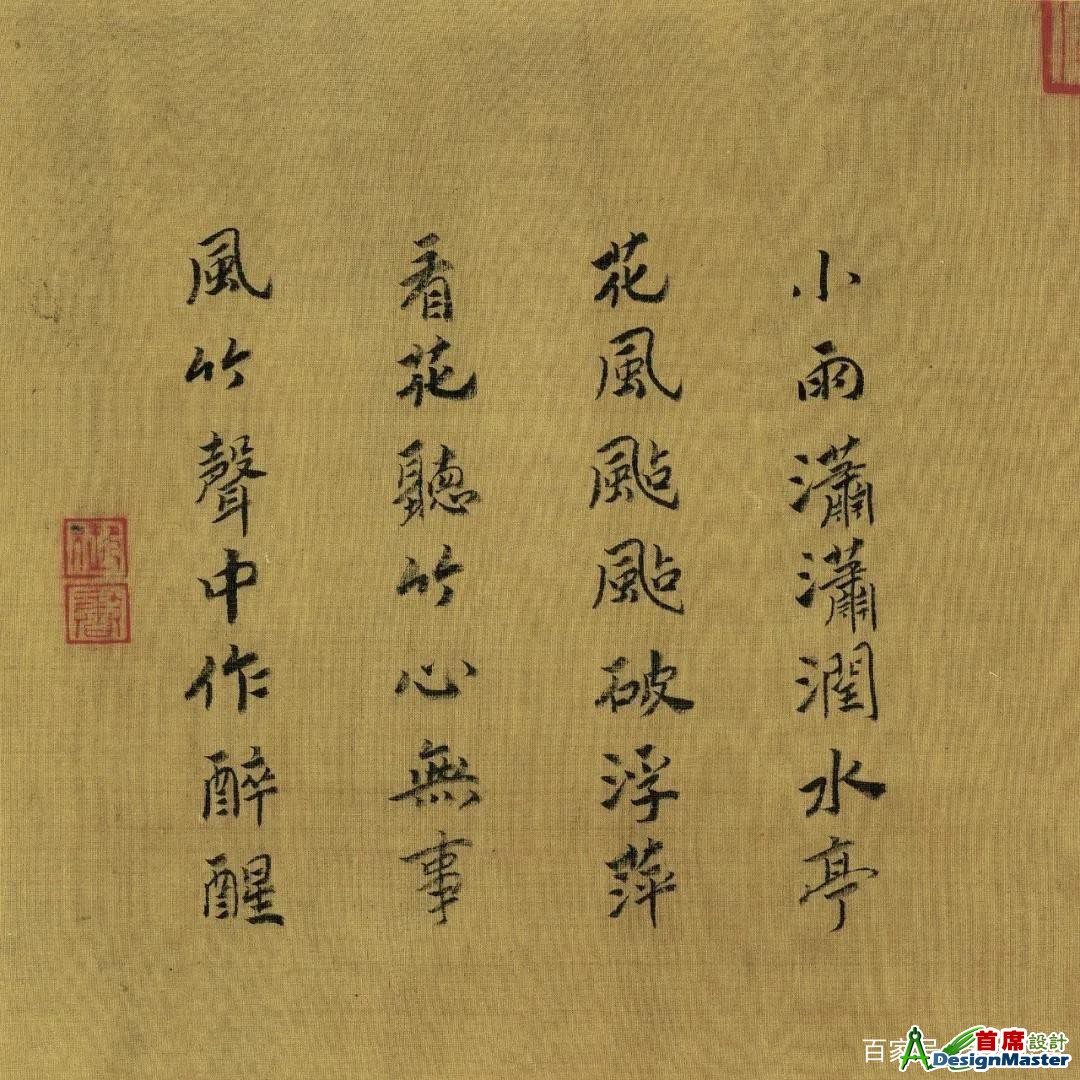 小雨瀟瀟潤水亭
花風颭颭破浮萍
看花聽竹心無事
風竹聲中作醉醒
百家号
首席設計
DesignMaster